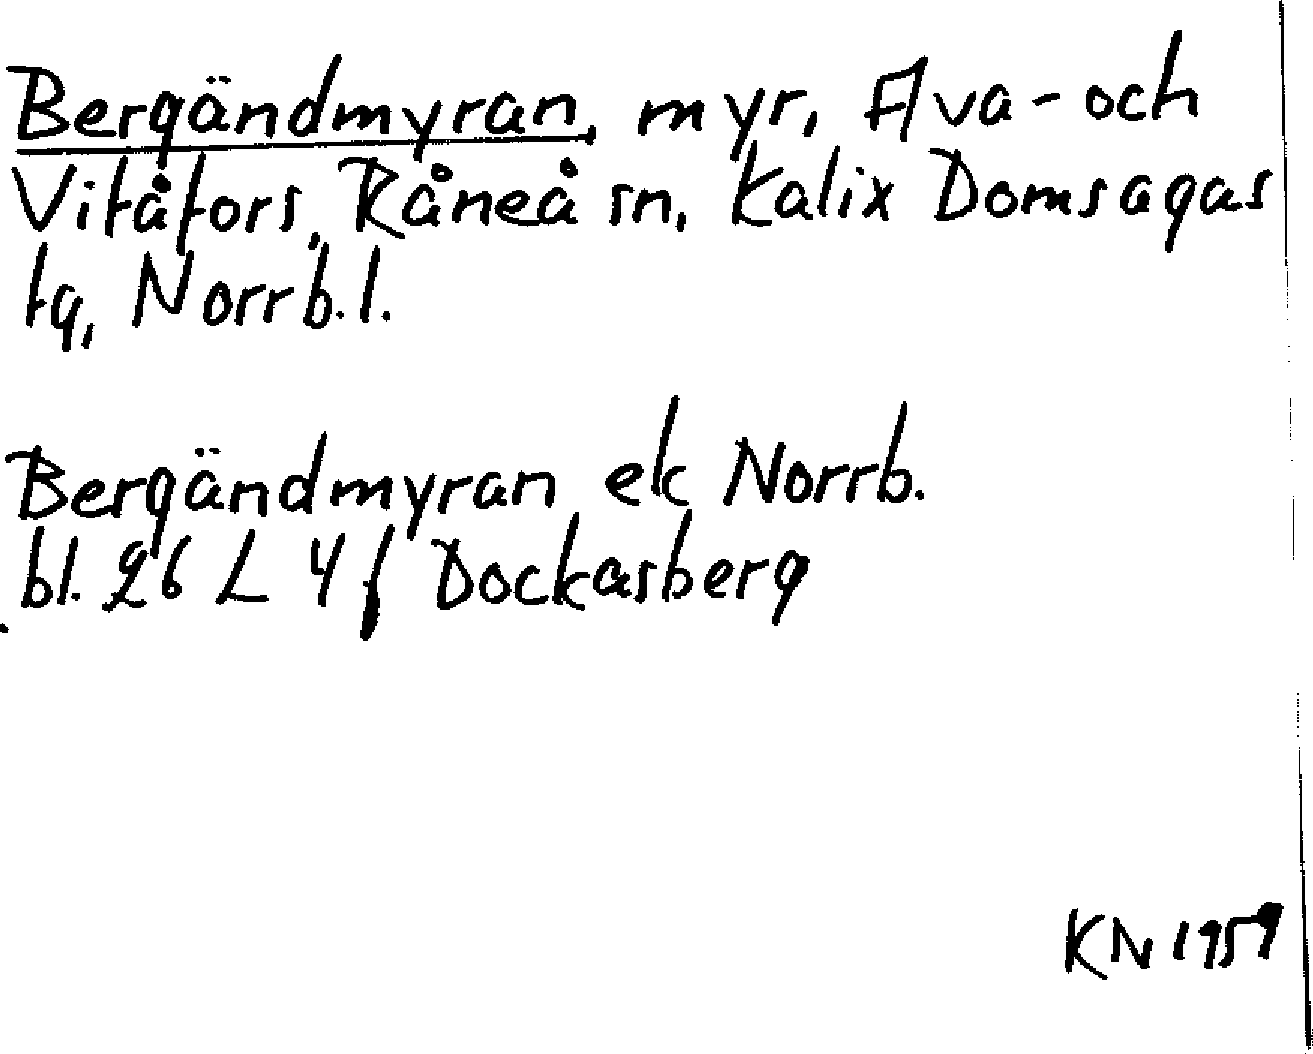 Bergändmyran, myr, Avа- och
Vitåfors, Råneå sn, Kalix Domsagas
tg, Norrb.l.
Bergändmyran ek Norrb.
bl. 26 L 4 f Dockasberg
KN 1959